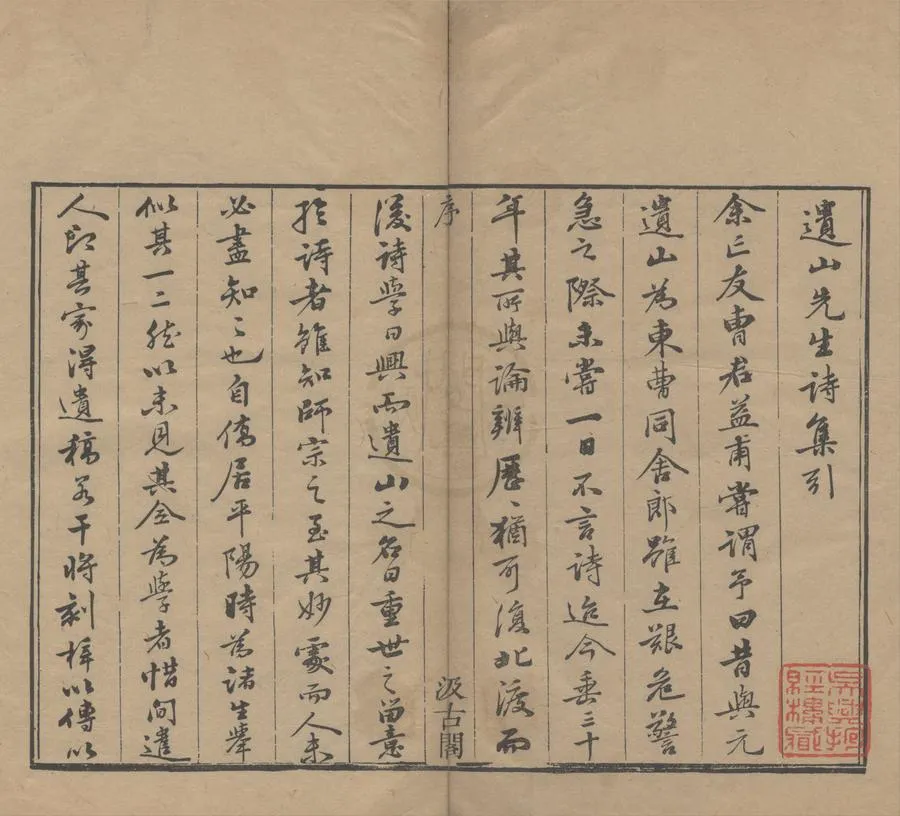 遺山先生詩集引
余亡友曹君益甫嘗謂予曰昔與元
遺山為東曹同舍郎雖在艱危警
急之際未嘗一日不言詩迨今垂三十
年其所與論辨歷〻猶可復北渡而
序
汲古閣
後詩學日興而遺山之名日重世之留意
於詩者雖知師宗之至其妙處而人未
必盡知之也自僑居平陽時為諸生舉
似其一二然以未見其全為學者惜間遣
人即其家得遺稿若干將刻梓以傳以